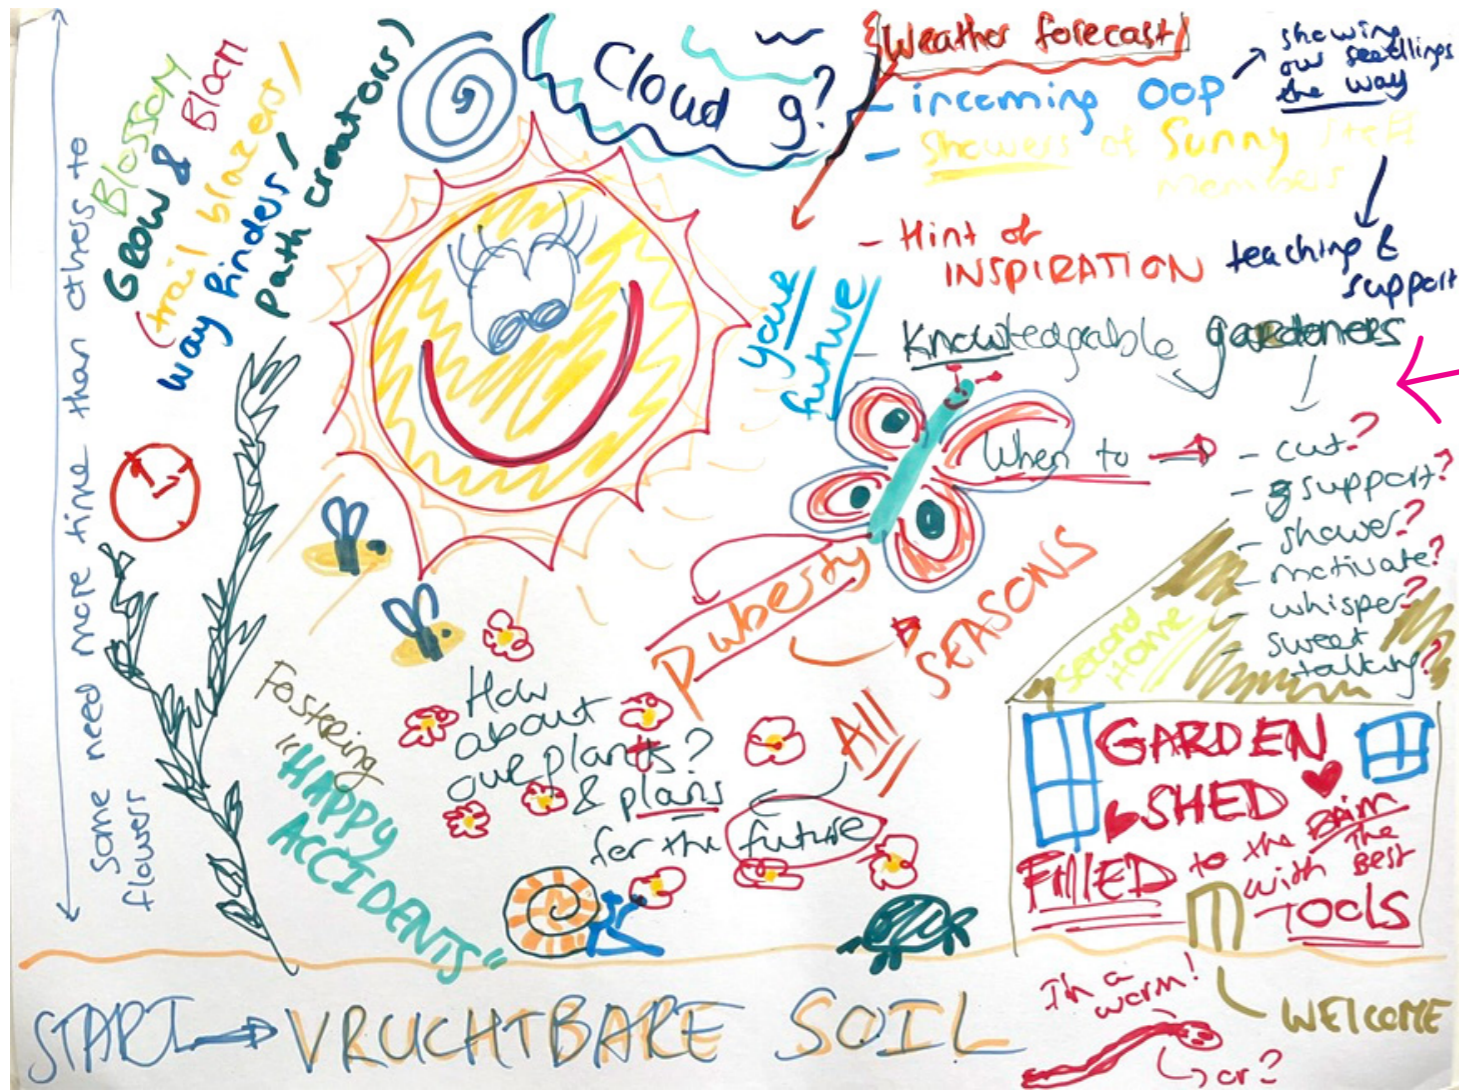 Some need more time than others to
flowers
Blossom
GROW & Bloom
(trail blazers/
way finders/
path creators)
Cloud 9?
Weather forecast
- incoming OOP
showing
our seedlings
the way
- Showers of Sunny staff
members
teaching &
support
- Hint of
INSPIRATION
- Knowledgeable gardeners
your
future
When to
- cut?
- support?
- shower?
- motivate?
- whisper?
- sweet
talking?
Puberty
All
SEASONS
Fostering
"HAPPY
ACCIDENTS"
How
about
our plants?
& plans
for the future
second
Home
GARDEN
SHED
FIllED to the BRIM
with the
BEST
TOOLS
WElCOME
I'm a
worm!
or?
START VRUCHTBARE SOIL